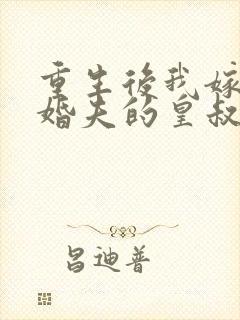 重生後我嫁
婚夫的皇叔
昌迪普